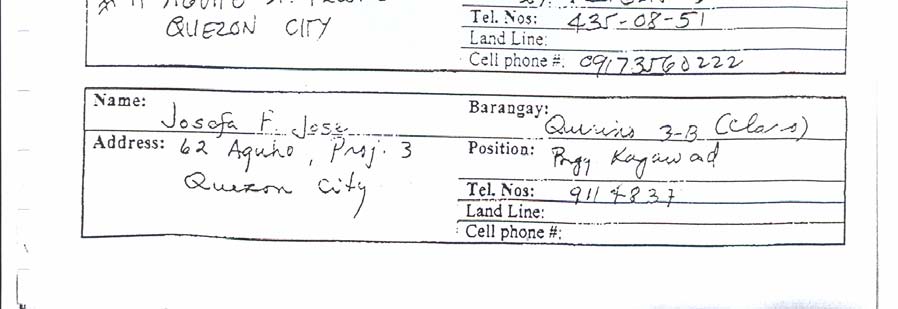 QUEZON CITY
Tel. Nos: 435-08-51
Land Line:
Cell phone #: 09173560222
Name: Josefa F. Jose
Barangay: Quirino 3-B (Claro)
Address: 62 Aguho, Proj. 3
Quezon City
Position: Brgy Kagawad
Tel. Nos: 9114837
Land Line:
Cell phone #: